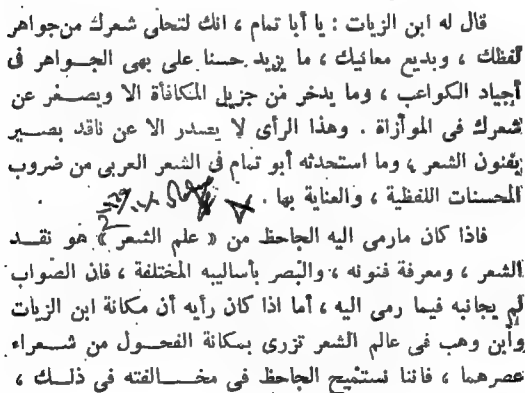 قال له ابن الزيات : يا أبا تمام ، انك لتحلى شعرك من جواهر
لفظك ، وبديع معانيك ، ما يزيد حسنا على بهى الجــواهر فى
أجياد الكواعب ، وما يدخر من جزيل المكافأة الا ويصــغر عن
شعرك فى الموازاة . وهذا الرأى لا يصدر الا عن ناقد بصــير
بفنون الشعر ، وما استحدثه أبو تمام فى الشعر العربى من ضروب
المحسنات اللفظية ، والعناية بها .
فاذا كان مارمى اليه الجاحظ من « علم الشعر » هو نقــد
الشعر ، ومعرفة فنونه ، والبصر بأساليبه المختلفة ، فان الصواب
لم يجانبه فيما رمى اليه ، أما اذا كان رأيه أن مكانة ابن الزيات
وابن وهب فى عالم الشعر تزرى بمكانة الفحــول من شــعراء
عصرهما ، فاننا نستميح الجاحظ فى مخــالفته فى ذلــك ،